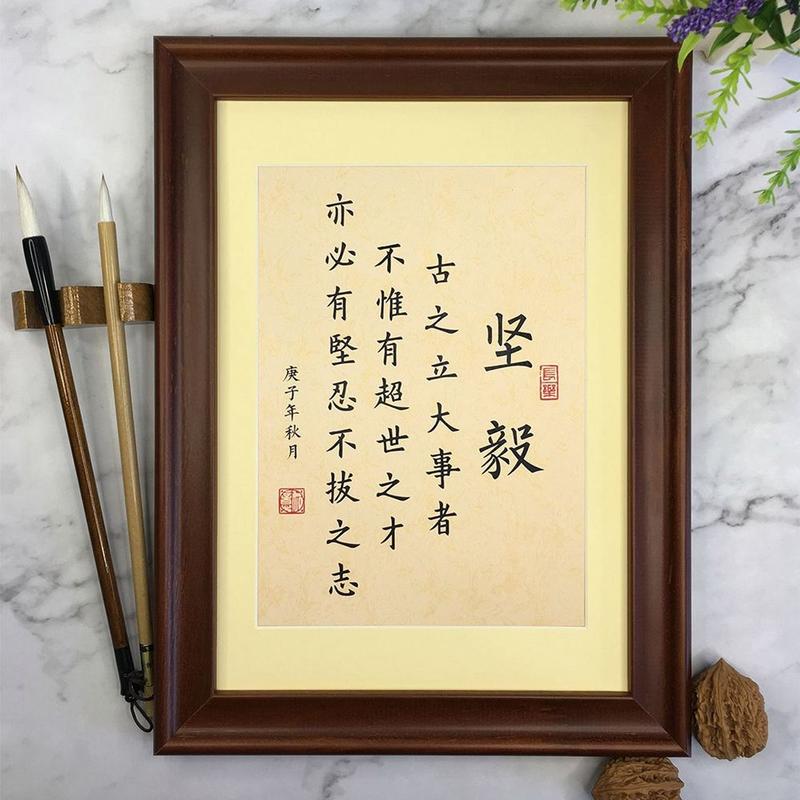 坚毅
古之立大事者
不惟有超世之才
亦必有堅忍不拔之志
庚子年秋月